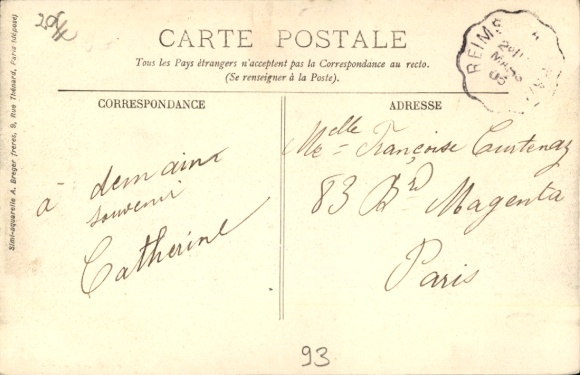 CARTE POSTALE
Tous les Pays étrangers n'acceptent pas la Correspondance au recto.
(Se renseigner à la Poste).
CORRESPONDANCE
à demain
souvenir
Catherine
ADRESSE
Melle Françoise Curtenaz
83 Bd Magenta
Paris
93
REIMS
Simi-aquarelle A. Breger frères, 9, Rue Thénard, Paris (déposé)